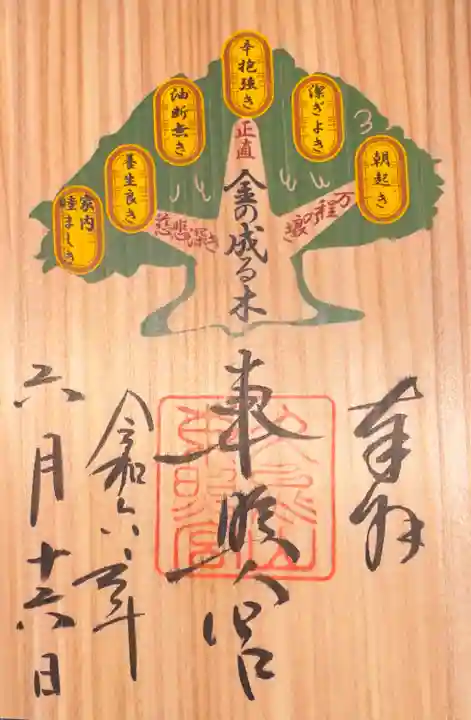 朝起き
潔ぎよき
辛抱強き
油断無き
養生良き
家内
睦ましき
万程の
よき
正直
慈悲深き
金の成る木
奉拝
東照宮
久能山
東照宮
令和六年
六月十六日